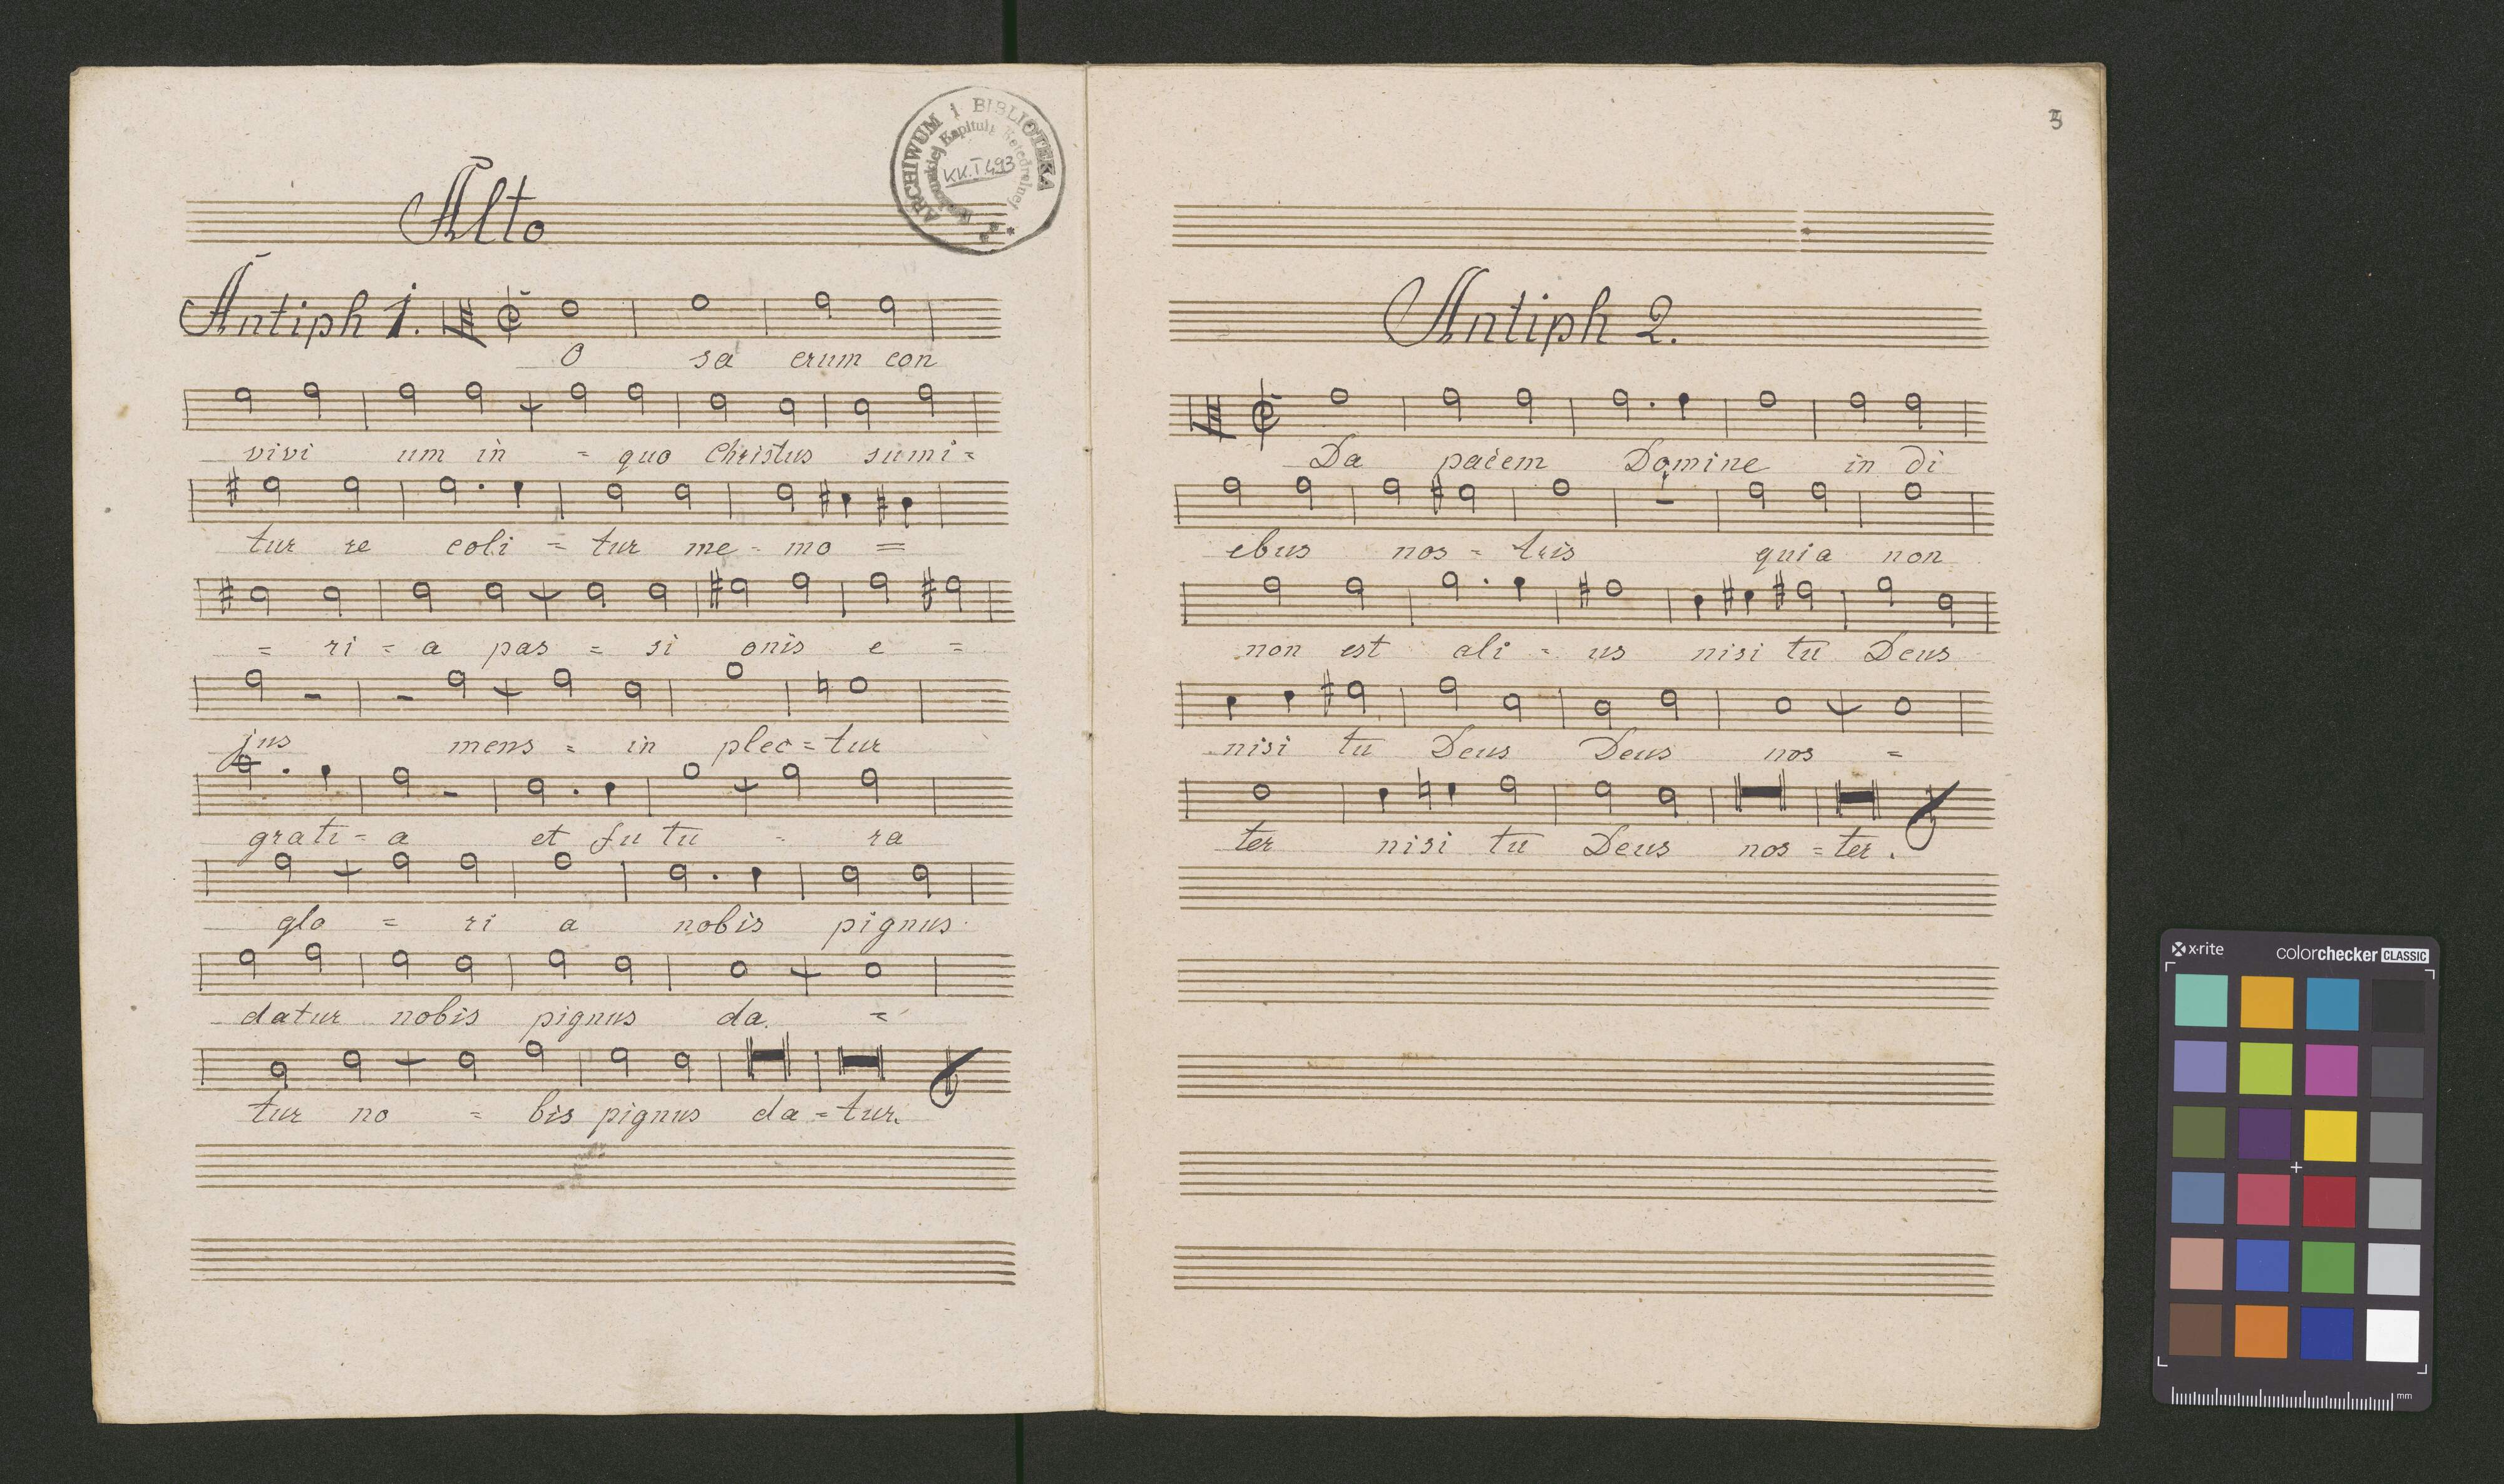 ARCHIWUM i BIBLIOTEKA
Kapituły Katedralnej
KK.I.493
Alto
Antiph 1.
O sa crum con
vivi um in = quo Christus sumi =
tur re coli = tur me = mo =
= ri = a pas = si onis e =
jus mens = in plec = tur
grati = a et fu tu = ra
glo = ri a nobis pignus
datur nobis pignus da =
tur no = bis pignus da = tur.
3
Antiph 2.
Da pacem Domine in di
ebus nos = tris quia non
non est ali = us nisi tu Deus
nisi tu Deus Deus nos =
ter nisi tu Deus nos = ter.
x·rite colorchecker CLASSIC
mm